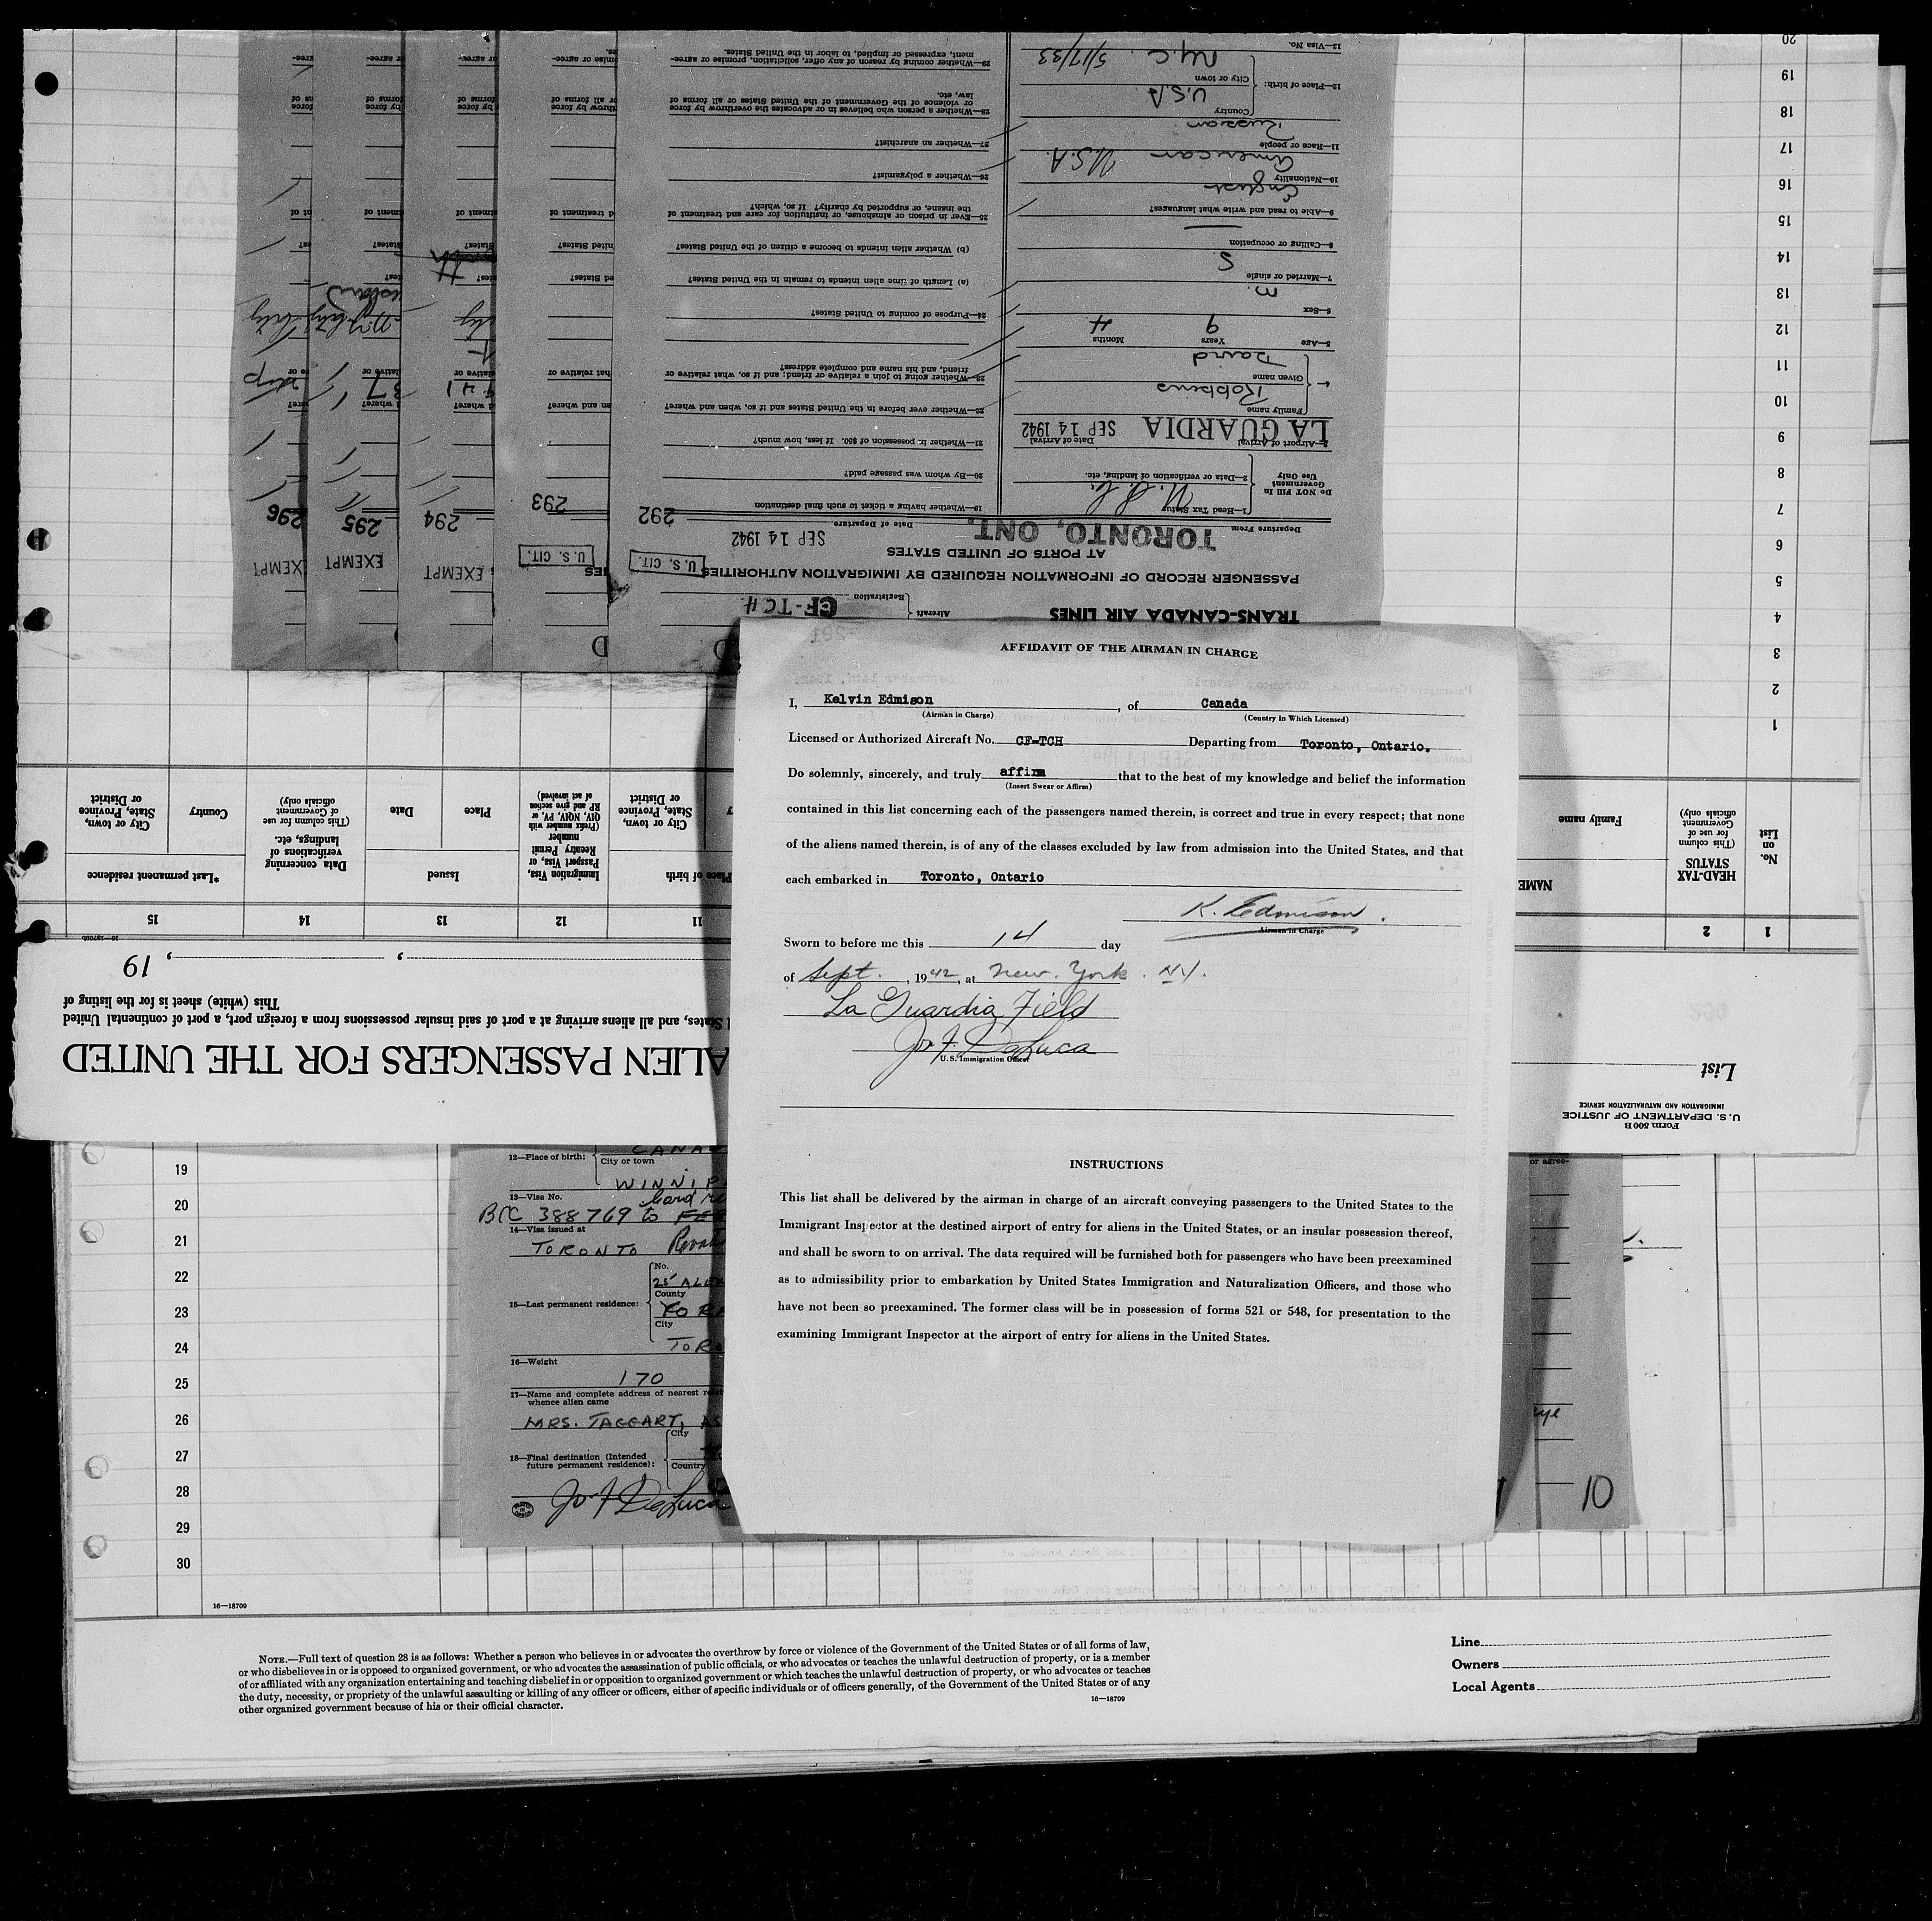 AFFIDAVIT OF THE AIRMAN IN CHARGE
I, Kelvin Edmison, of Canada
(Airman in Charge) (Country in Which Licensed)
Licensed or Authorized Aircraft No. CF-TCH Departing from Toronto, Ontario.
Do solemnly, sincerely, and truly affirm that to the best of my knowledge and belief the information
(Insert Swear or Affirm)
contained in this list concerning each of the passengers named therein, is correct and true in every respect; that none
of the aliens named therein, is of any of the classes excluded by law from admission into the United States, and that
each embarked in Toronto, Ontario
K. Edmison.
Airman in Charge
Sworn to before me this 14 day
of Sept., 1942, at New York. N.Y.
La Guardia Field
Jos F. DeLuca
U.S. Immigration Officer
INSTRUCTIONS
This list shall be delivered by the airman in charge of an aircraft conveying passengers to the United States to the
Immigrant Inspector at the destined airport of entry for aliens in the United States, or an insular possession thereof,
and shall be sworn to on arrival. The data required will be furnished both for passengers who have been preexamined
as to admissibility prior to embarkation by United States Immigration and Naturalization Officers, and those who
have not been so preexamined. The former class will be in possession of forms 521 or 548, for presentation to the
examining Immigrant Inspector at the airport of entry for aliens in the United States.
TRANS-CANADA AIR LINES
Aircraft Registration CF-TCH
PASSENGER RECORD OF INFORMATION REQUIRED BY IMMIGRATION AUTHORITIES
AT PORTS OF UNITED STATES
U. S. CIT.
Departure From TORONTO, ONT. Date of Departure SEP 14 1942
292
Do NOT Fill In
Government
Use Only
1—Head Tax Status
2—Data or verification of landing, etc.
3—Airport of Arrival LA GUARDIA Date of Arrival SEP 14 1942
Family name Robbins
Given name David
5—Age Years 9 Months 4
6—Sex M.
7—Married or single S
8—Calling or occupation
9—Able to read and write what languages? English
10—Nationality American U.S.A.
11—Race or people Russian
12—Place of birth: Country U.S.A
City or town N.Y.C. 5/17/33
13—Visa No.
19—Whether having a ticket to such final destination
20—By whom was passage paid?
21—Whether in possession of $50. If less, how much?
22—Whether ever before in the United States and if so, when and where?
23—Whether going to join a relative or friend; and if so, what relative or
friend, and his name and complete address?
24—Purpose of coming to United States?
(a) Length of time alien intends to remain in the United States?
(b) Whether alien intends to become a citizen of the United States?
25—Ever in prison or almshouse, or institution for care and treatment of
the insane, or supported by charity? If so, which?
26—Whether a polygamist?
27—Whether an anarchist?
28—Whether a person who believes in or advocates the overthrow by force
or violence of the Government of the United States or all forms of
law, etc.
29—Whether coming by reason of any offer, solicitation, promise or agree-
ment, expressed or implied, to labor in the United States.
U. S. CIT.
293
EXEMPT
294
EXEMPT
295
EXEMPT
296
Form 500 B
U. S. DEPARTMENT OF JUSTICE
IMMIGRATION AND NATURALIZATION SERVICE
List
ALIEN PASSENGERS FOR THE UNITED
States, and all aliens arriving at a port of said insular possessions from a foreign port, a port of continental United
This (white) sheet is for the listing of
, 19
16—18709b
1 2 11 12 13 14 15
No. on List
HEAD-TAX STATUS
(This column for use of Government officials only)
NAME
Family name
Place of birth
City or town, State, Province or District
Immigration Visa, Passport Visa, or Reentry Permit number
(Prefix number with QIV, NQIV, PV, or RP and give section of act involved)
Issued
Place
Date
Data concerning verifications of landings, etc.
(This column for use of Government officials only)
*Last permanent residence
Country
City or town, State, Province or District
1
2
3
4
5
6
7
8
9
10
11
12
13
14
15
16
17
18
19
20
12—Place of birth:
City or town
13—Visa No.
BCC 388769 to
14—Visa issued at
TORONTO
15—Last permanent residence:
No.
County
City
16—Weight
170
17—Name and complete address of nearest
whence alien came
MRS. TAGGART,
18—Final destination (Intended
future permanent residence):
City
Country
Jos F DeLuca
or agree-
10
19
20
21
22
23
24
25
26
27
28
29
30
16—18709
NOTE.—Full text of question 28 is as follows: Whether a person who believes in or advocates the overthrow by force or violence of the Government of the United States or of all forms of law,
or who disbelieves in or is opposed to organized government, or who advocates the assassination of public officials, or who advocates or teaches the unlawful destruction of property, or is a member
of or affiliated with any organization entertaining and teaching disbelief in or opposition to organized government or which teaches the unlawful destruction of property, or who advocates or teaches
the duty, necessity, or propriety of the unlawful assaulting or killing of any officer or officers, either of specific individuals or of officers generally, of the Government of the United States or of any
other organized government because of his or their official character.
16—18709
Line
Owners
Local Agents